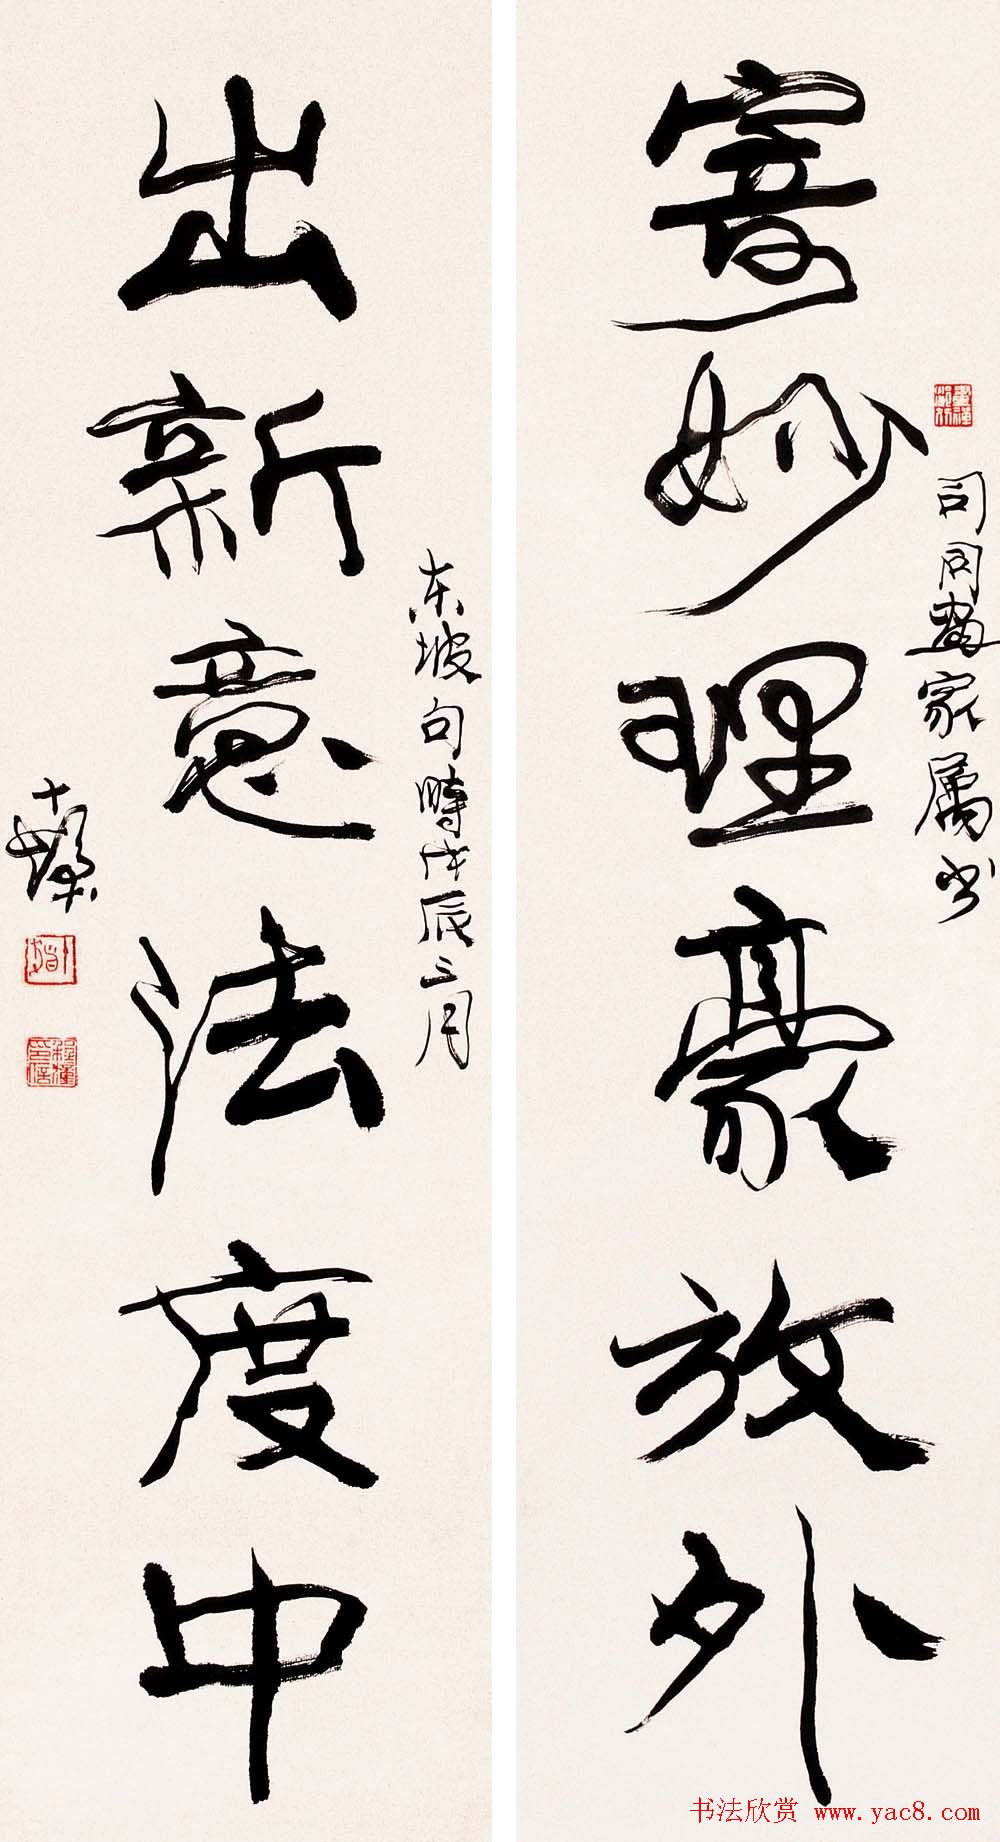 寄妙理豪放外
司同畫家属书
出新意法度中
东坡句時戊辰三月
十髮
书法欣赏 www.yac8.com